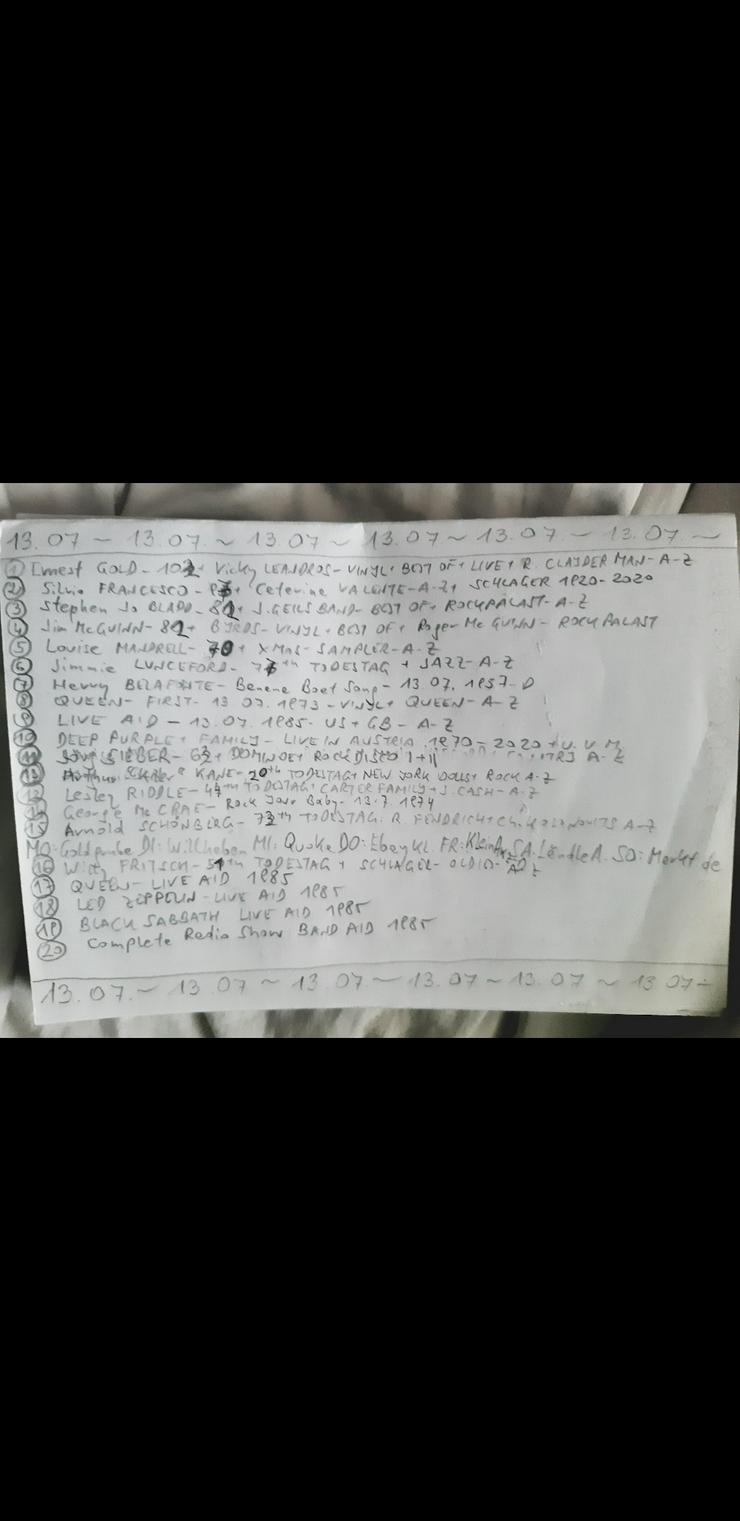 13.07 ~ 13.07 ~ 13.07 ~ 13.07 ~ 13.07 ~ 13.07 ~
① Ernest GOLD - 102 + Vicky LEANDROS - VINYL + BEST OF + LIVE + R. CLAYDERMAN - A-Z
② Silvio FRANCESCO - + Caterina VALENTE - A-Z + SCHLAGER 1920-2020
③ Stephen Jo BLADD - 82 + J. GEILS BAND - BEST OF + ROCKPALAST - A-Z
④ Jim McGUINN - 82 + BYRDS - VINYL + BEST OF + Roger Mc GUINN - ROCKPALAST
⑤ Louise MANDRELL - 70 + XMAS - SAMPLER - A-Z
⑥ Jimmie LUNCEFORD - TODESTAG + JAZZ - A-Z
⑦ Harry BELAFONTE - Banana Boat Song - 13.07.1957 - D
⑧ QUEEN - FIRST - 13.07.1973 - VINYL + QUEEN - A-Z
⑨ LIVE AID - 13.07.1985 - US + GB - A-Z
⑩ DEEP PURPLE + FAMILY - LIVE IN AUSTRIA 1970-2020 + U.V.M.
SIEBER - 62 + DOMINOE + ROCK DISCO I + II A-Z
KANE - 20th TODESTAG + NEW YORK DOLLS + ROCK A-Z
Lesley RIDDLE - TODESTAG + CARTER FAMILY + J. CASH - A-Z
George Mc CRAE - Rock Your Baby - 13.7.1974
Arnold SCHÖNBERG - 73th TODESTAG. R. FENDRICH + A-Z
MO: Goldgrube DI: Willhaben MI: Quoka DO: Ebay Kl. FR: SA: LändleA. SO: Markt.de
⑯ FRITSCH - 51th TODESTAG + SCHLAGER - OLDIES - A-Z
⑰ QUEEN - LIVE AID 1985
⑱ LED ZEPPELIN - LIVE AID 1985
⑲ BLACK SABBATH LIVE AID 1985
⑳ Complete Radio Show BAND AID 1985
13.07. ~ 13.07 ~ 13.07 ~ 13.07 ~ 13.07 ~ 13.07 ~